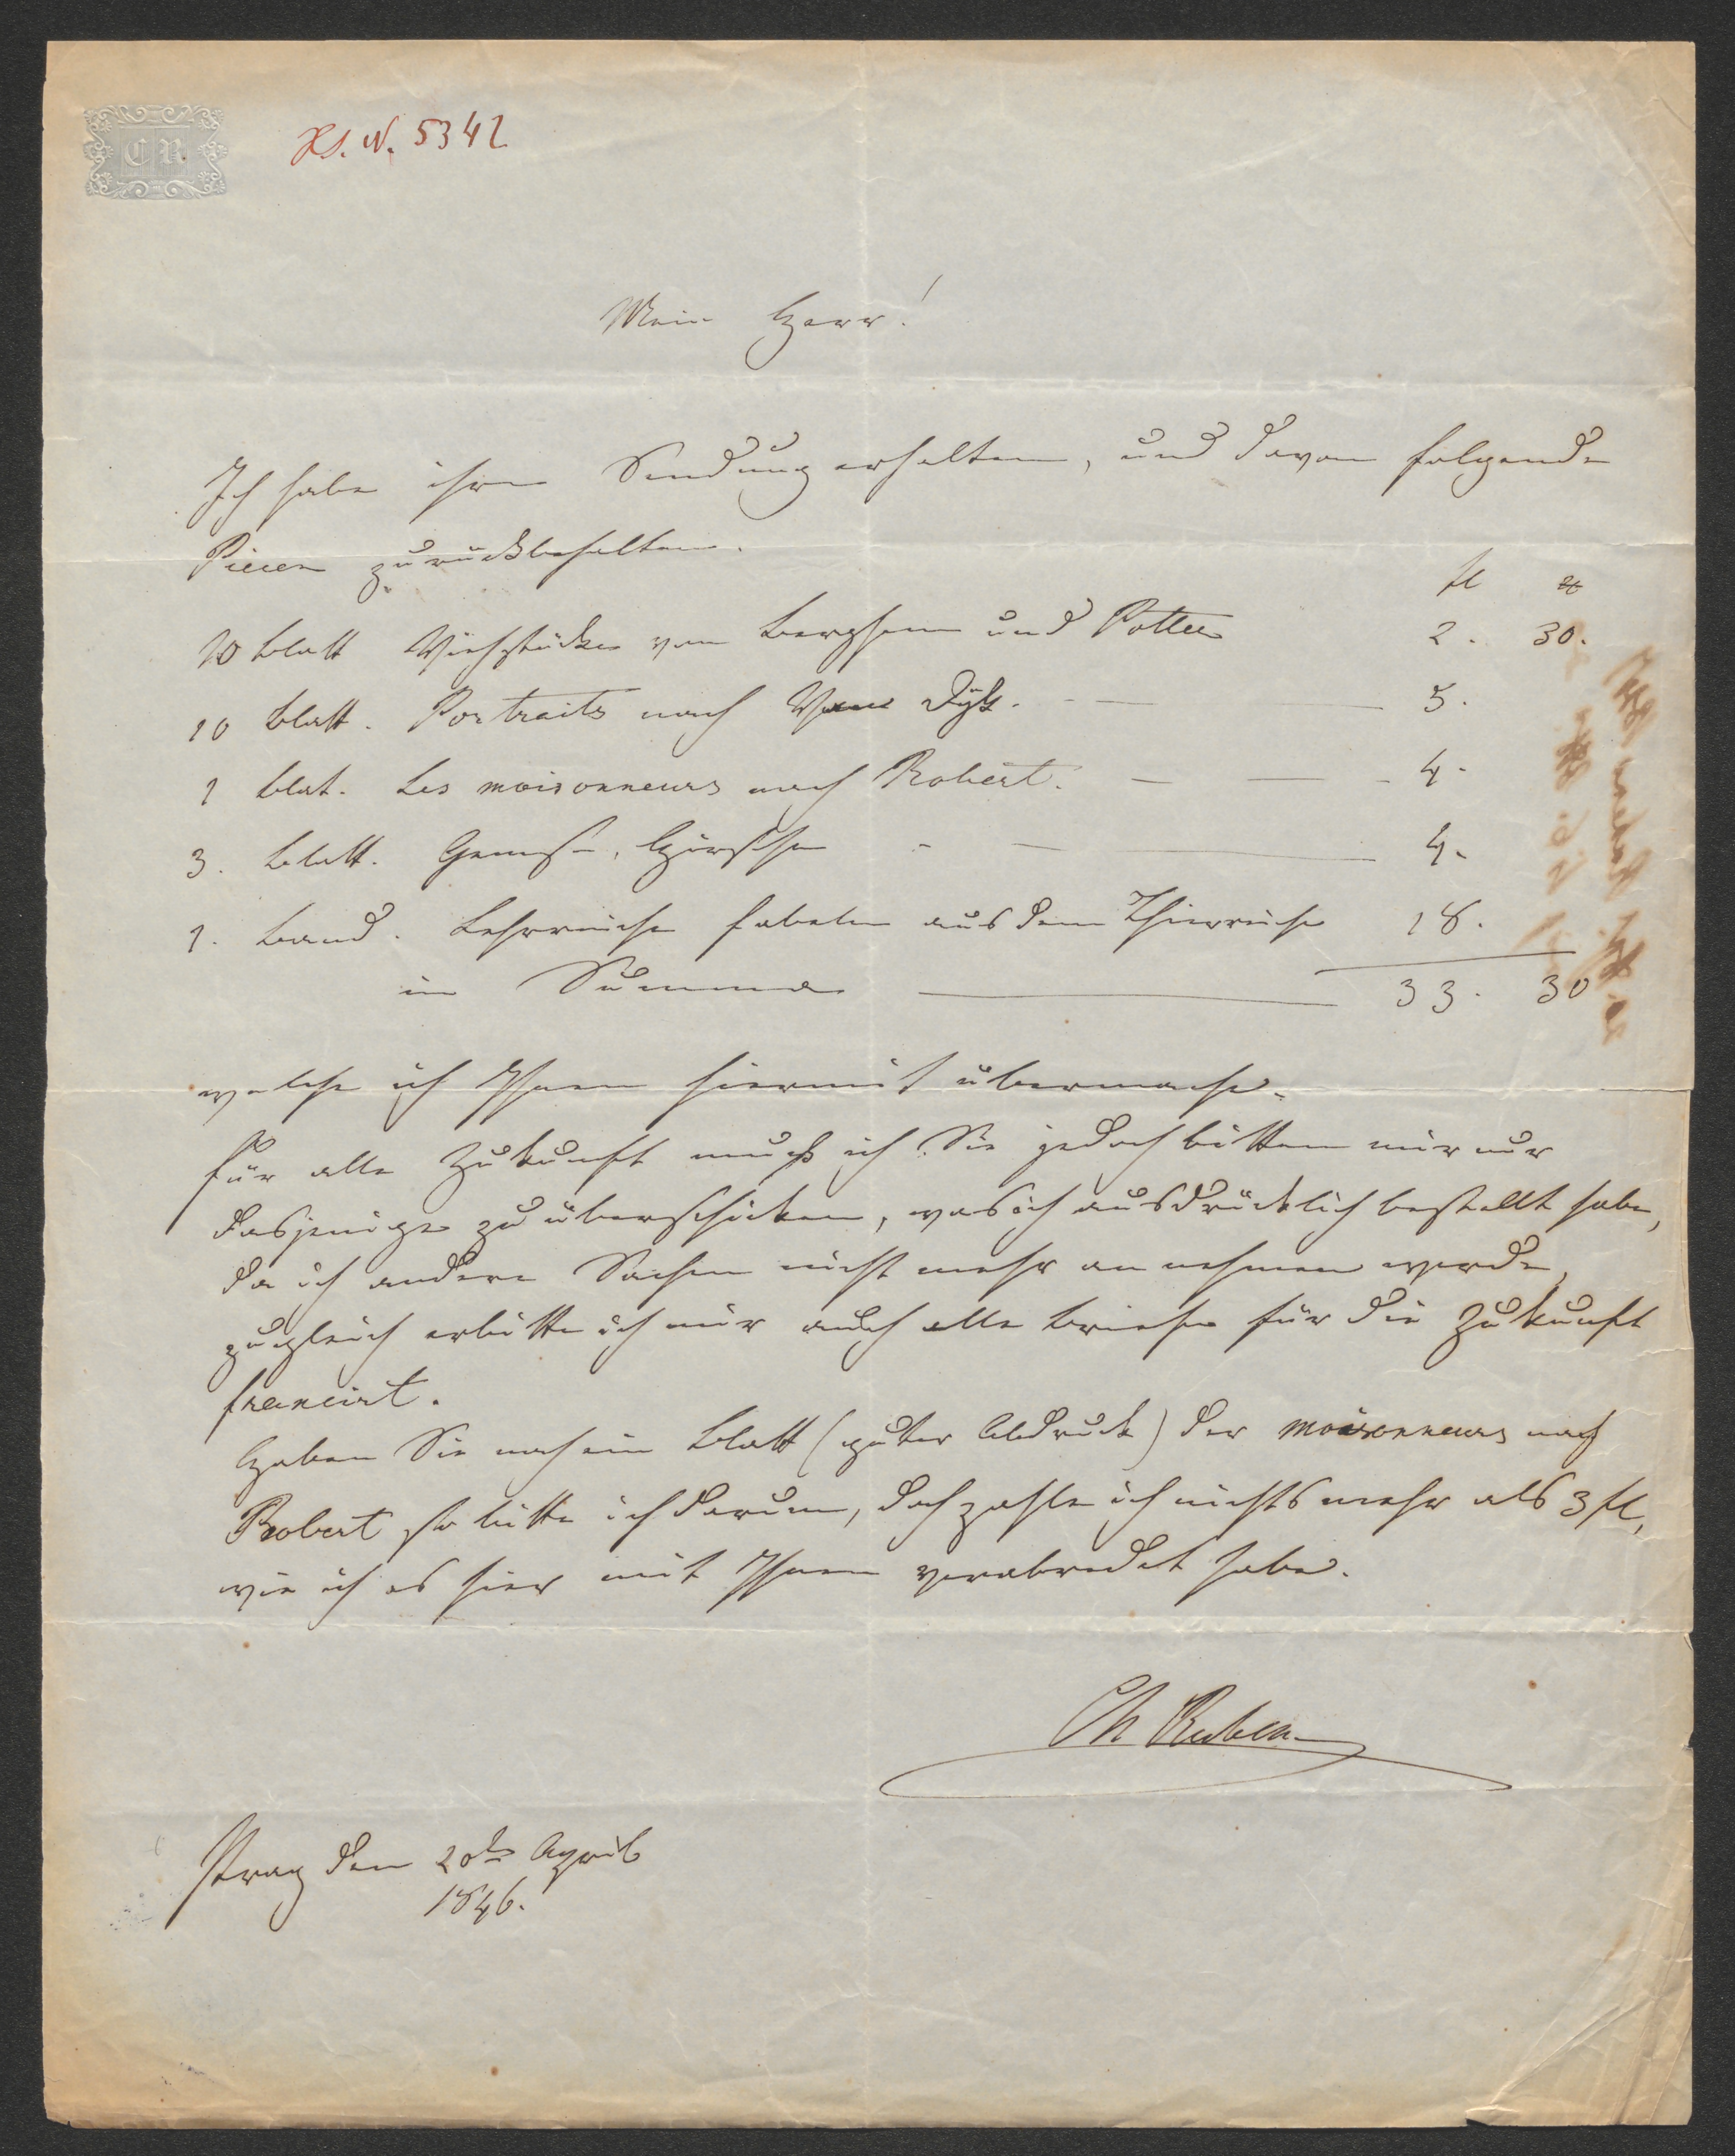 C R.
Hs. N. 5342
Mein Herr!
Ich habe ihre Sendung erhalten, und davon folgende
Piecen zurückbehalten.
fl x
10 Blatt Viehstücke von Berghem und Potter 2. 30.
10 Blatt. Portraits nach Van Dyk. — 5.
1 Blat. Les moisonneurs nach Robert. — 4.
3. Blatt. Gemse, Hirsche — 4.
1. Band. Lehrreiche Fabeln aus dem Thierreiche 18.
in Summa — 33. 30
welche ich Ihnen hiermit übermache.
Für alle Zukunft muß ich Sie jedoch bitten mir nur
dasjenige zu überschicken, was ich ausdrücklich bestellt habe,
da ich andere Sachen nicht mehr annehmen werde,
zugleich erbitte ich mir auch alle Briefe für die Zukunft
francirt.
Haben Sie noch ein Blatt (guter Abdruck) der moisonneurs nach
Robert so bitte ich darum, doch zahle ich nichts mehr als 3 fl,
wie ich es hier mit Ihnen verabredet habe.
Ch Ruben
Prag den 20ten April
1846.